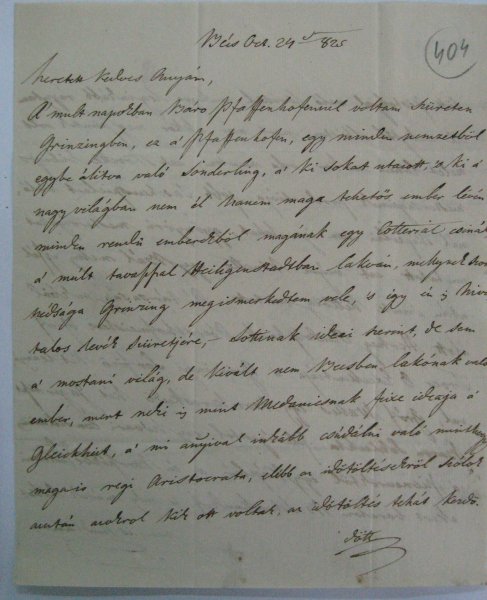 Bécs Oct. 24 825
404
Kedves Anyám,
A' mult napokban Báro Pfaffenhofennél voltam szüreten
Grinzingben, ez a' Pfaffenhofen, egy minden nemzetből
egybe állitva való Sonderling, a' ki sokat utazott, 's ki a'
nagy világban nem él hanem maga tehetős ember lévén
minden rendű emberekből magának egy Cotteriát csinál
a' múlt tavaszszal Heiligenstadtban lakván, mellynek
Grinzing megismerkedtem vele, 's igy én is
talos levék szüretjére, ideai szerint, de sem
a' mostani világ, de kivált nem Bécsben lakónak való
ember, mert neki is mint Medanicsnak, fixe ideaja a'
Gleichheit, a' mi anyival inkább csudálni való
maga is regi Aristocrata, előbb az időtöltésekről szólok
azután azokrol kik ott voltak, az időtöltés tehát kezdő-
dött